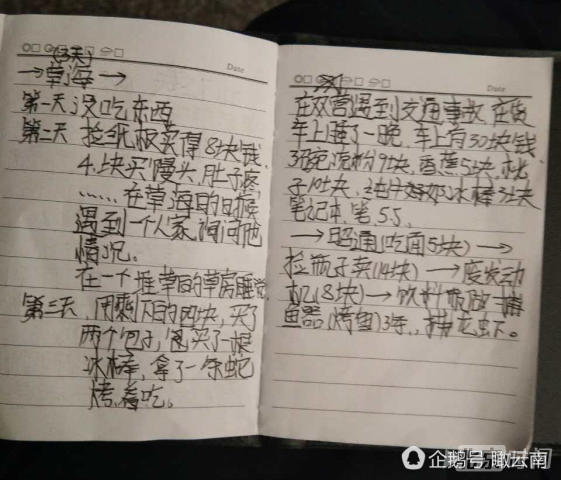 Date
(3天)
→草海→
第一天没吃东西
第二天 捡纸板卖得8块钱.
4块买馒头,肚子疼
……在草海的时候
遇到一个人家询问他
情况。
在一个堆草的草房睡觉
第三天,用剩下的四块,买了
两个包子,買了一根
冰棒,拿了一条蛇
烤着吃。
Date
在双营遇到交通事故,在货
车上睡了一晚,车上有30块钱,
3碗凉粉9块,香蕉5块,桃
子10块,冰棒3块
笔记本,笔5.5
→昭通(吃面5块)→
捡瓶子卖(14块)→废发动
机(8块)→饮料瓶做捕
鱼器(烤鱼)3条,拂龙虾。
企鹅号 瞰云南